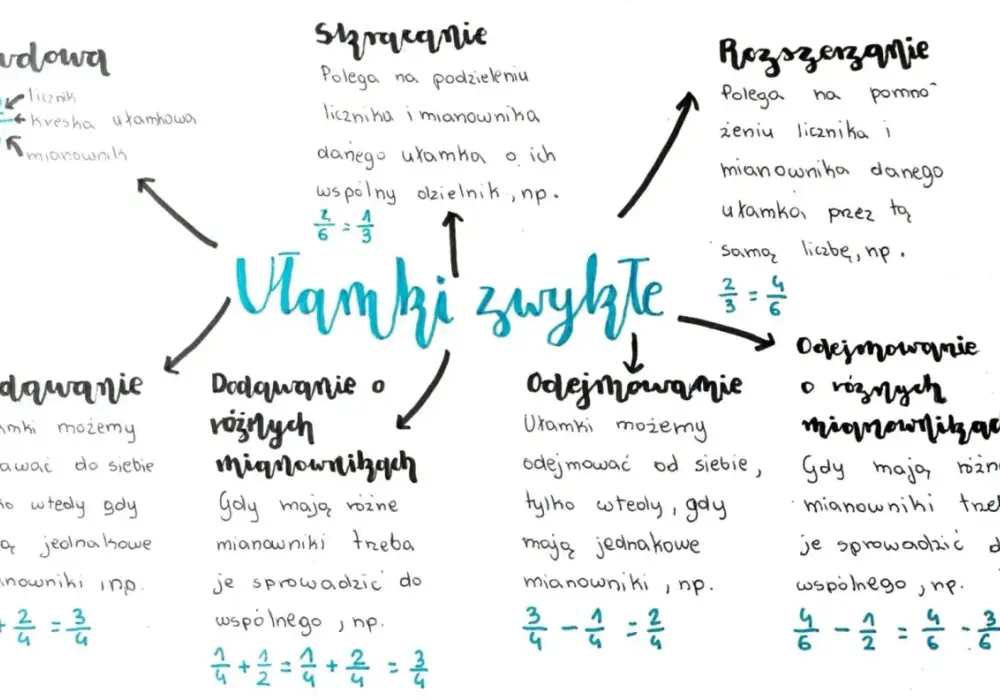 Skracanie
Polega na podzieleniu
licznika i mianownika
danego ułamka o ich
wspólny dzielnik, np.
2/6 = 1/3
Rozszerzanie
Polega na pomno-
żeniu licznika i
mianownika danego
ułamka przez tą
samą liczbę, np.
2/3 = 4/6
licznik
kreska ułamkowa
mianownik
Ułamki zwykłe
możemy
do siebie
wtedy gdy
jednakowe
, np.
+ 2/4 = 3/4
Dodawanie o
różnych
mianownikach
Gdy mają różne
mianowniki trzeba
je sprowadzić do
wspólnego, np.
1/4 + 1/2 = 1/4 + 2/4 = 3/4
Odejmowanie
Ułamki możemy
odejmować od siebie,
tylko wtedy, gdy
mają jednakowe
mianowniki, np.
3/4 - 1/4 = 2/4
Odejmowanie
o różnych
Gdy mają
mianowniki
je sprowadzić
wspólnego, np.
4/6 - 1/2 = 4/6 - 3/6